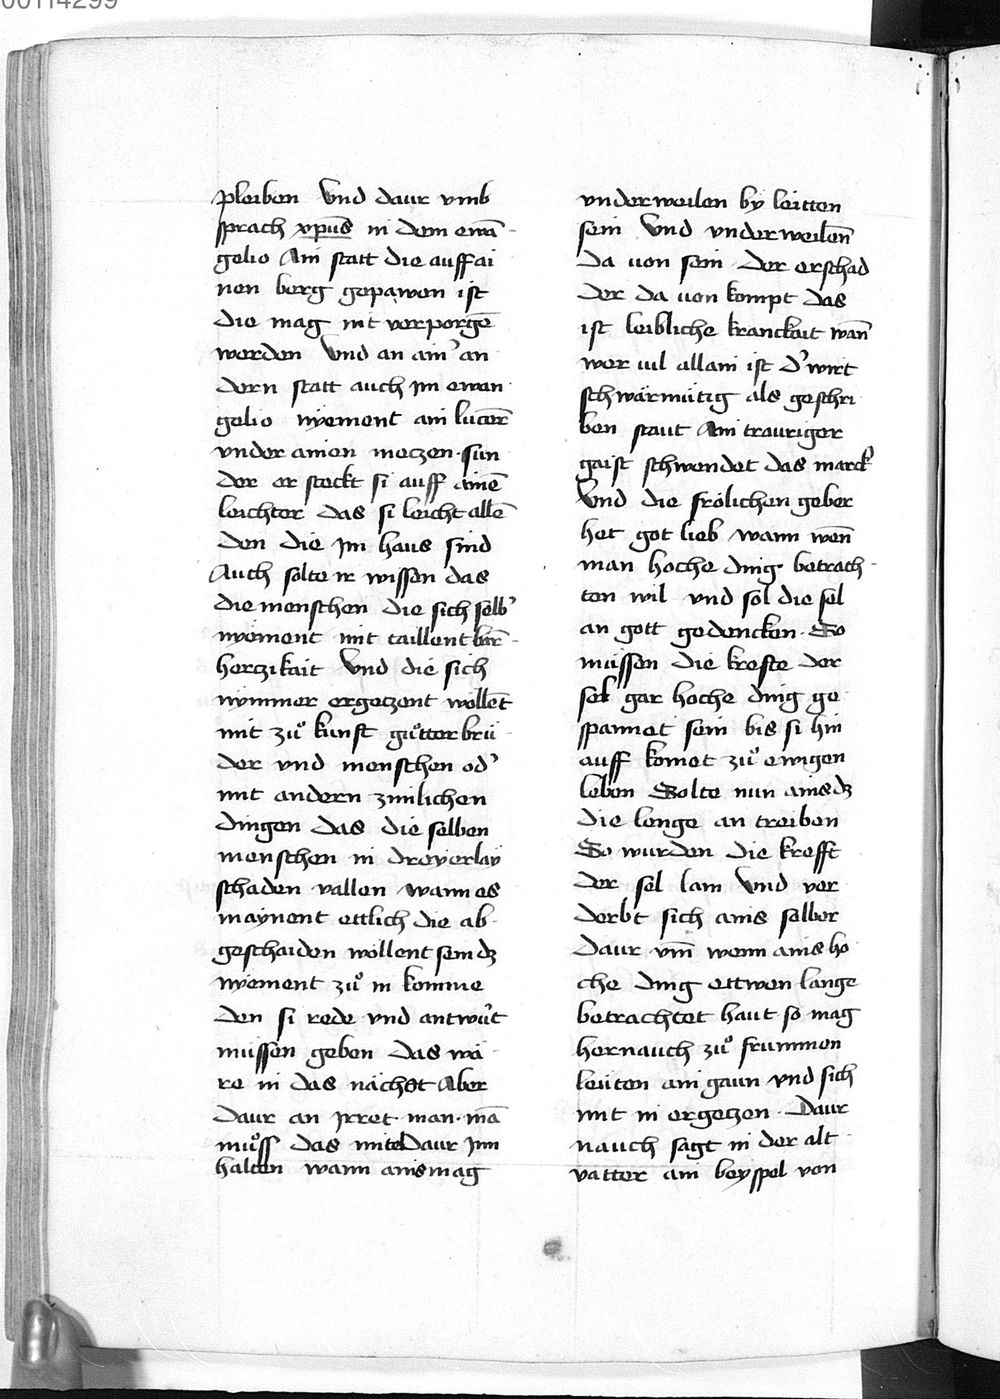 00114299
pleiben Vnd daur vmb
sprach xp̅us in dem ewā-
gelio Ain statt die auff ai
nen berg gepawen ist
die mag nit verporgē
werden Vnd an ainʼ an
dern statt auch jm ewan-
gelio nyement ain lucerr̄
vnder ainen meczen sun
der er steckt si auff ainē
leichter das si leicht allē
den die jm haus sind
Auch solte ir wissen das
die menschen die sich selbʼ
nyement mit taillent barr̄-
herczikait Vnd die sich
nymmer ergeczent wöllēt
mit zuͦ kunft guͦtter brü-
der vnd menschen odʼ
mit andern zimlichen
dingen das die selben
menschen in dreyerlay
schaden vallen wann es
maynent ettlich die ab-
geschaiden wöllent sein dz
nyement zuͦ in komme
den si rede vnd antwurt
müssen geben das wä-
re in das nächst Aber
daur an jrret man mā
muͦss das mitel daur jnn
halten wann ains mag
vnderweilen by leitten
sein Vnd vnderweilen̄
da uon sein Der erschad
der da uon kompt das
ist leibliche kranckait wan̄
wer uil allain ist dʼ wirt
schwärmütig als geschri
ben staut Ain trauriger
gaist schwendet das marckʼ
Vnd die frölichen geber
het got lieb wann wen̄
man hoche ding betrach-
ten wil vnd sol die sel
an gott gedencken So
müssen die krefte der
sel gar hoche ding ge
spannet sein bis si hin
auff komet zuͦ ewigen
leben Solte nun ains dz
die lenge an treiben
So wurden die krefft
der sel lam Vnd ver
derbt sich ains selber
Daur vm̄ wenn ains ho
che ding ettwen lange
betrachtet haut so mag
hernauch zuͦ frummen
leuten ain gaun vnd sich
mit in ergeczen Daur
nauch sagt in der alt
vatter ain beyspel von